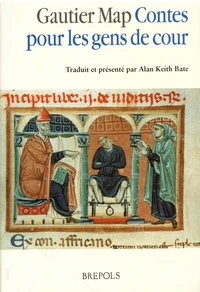 Gautier Map Contes
pour les gens de cour
Traduit et présenté par Alan Keith Bate
Incipit liber
Ex con. affricano
BREPOLS